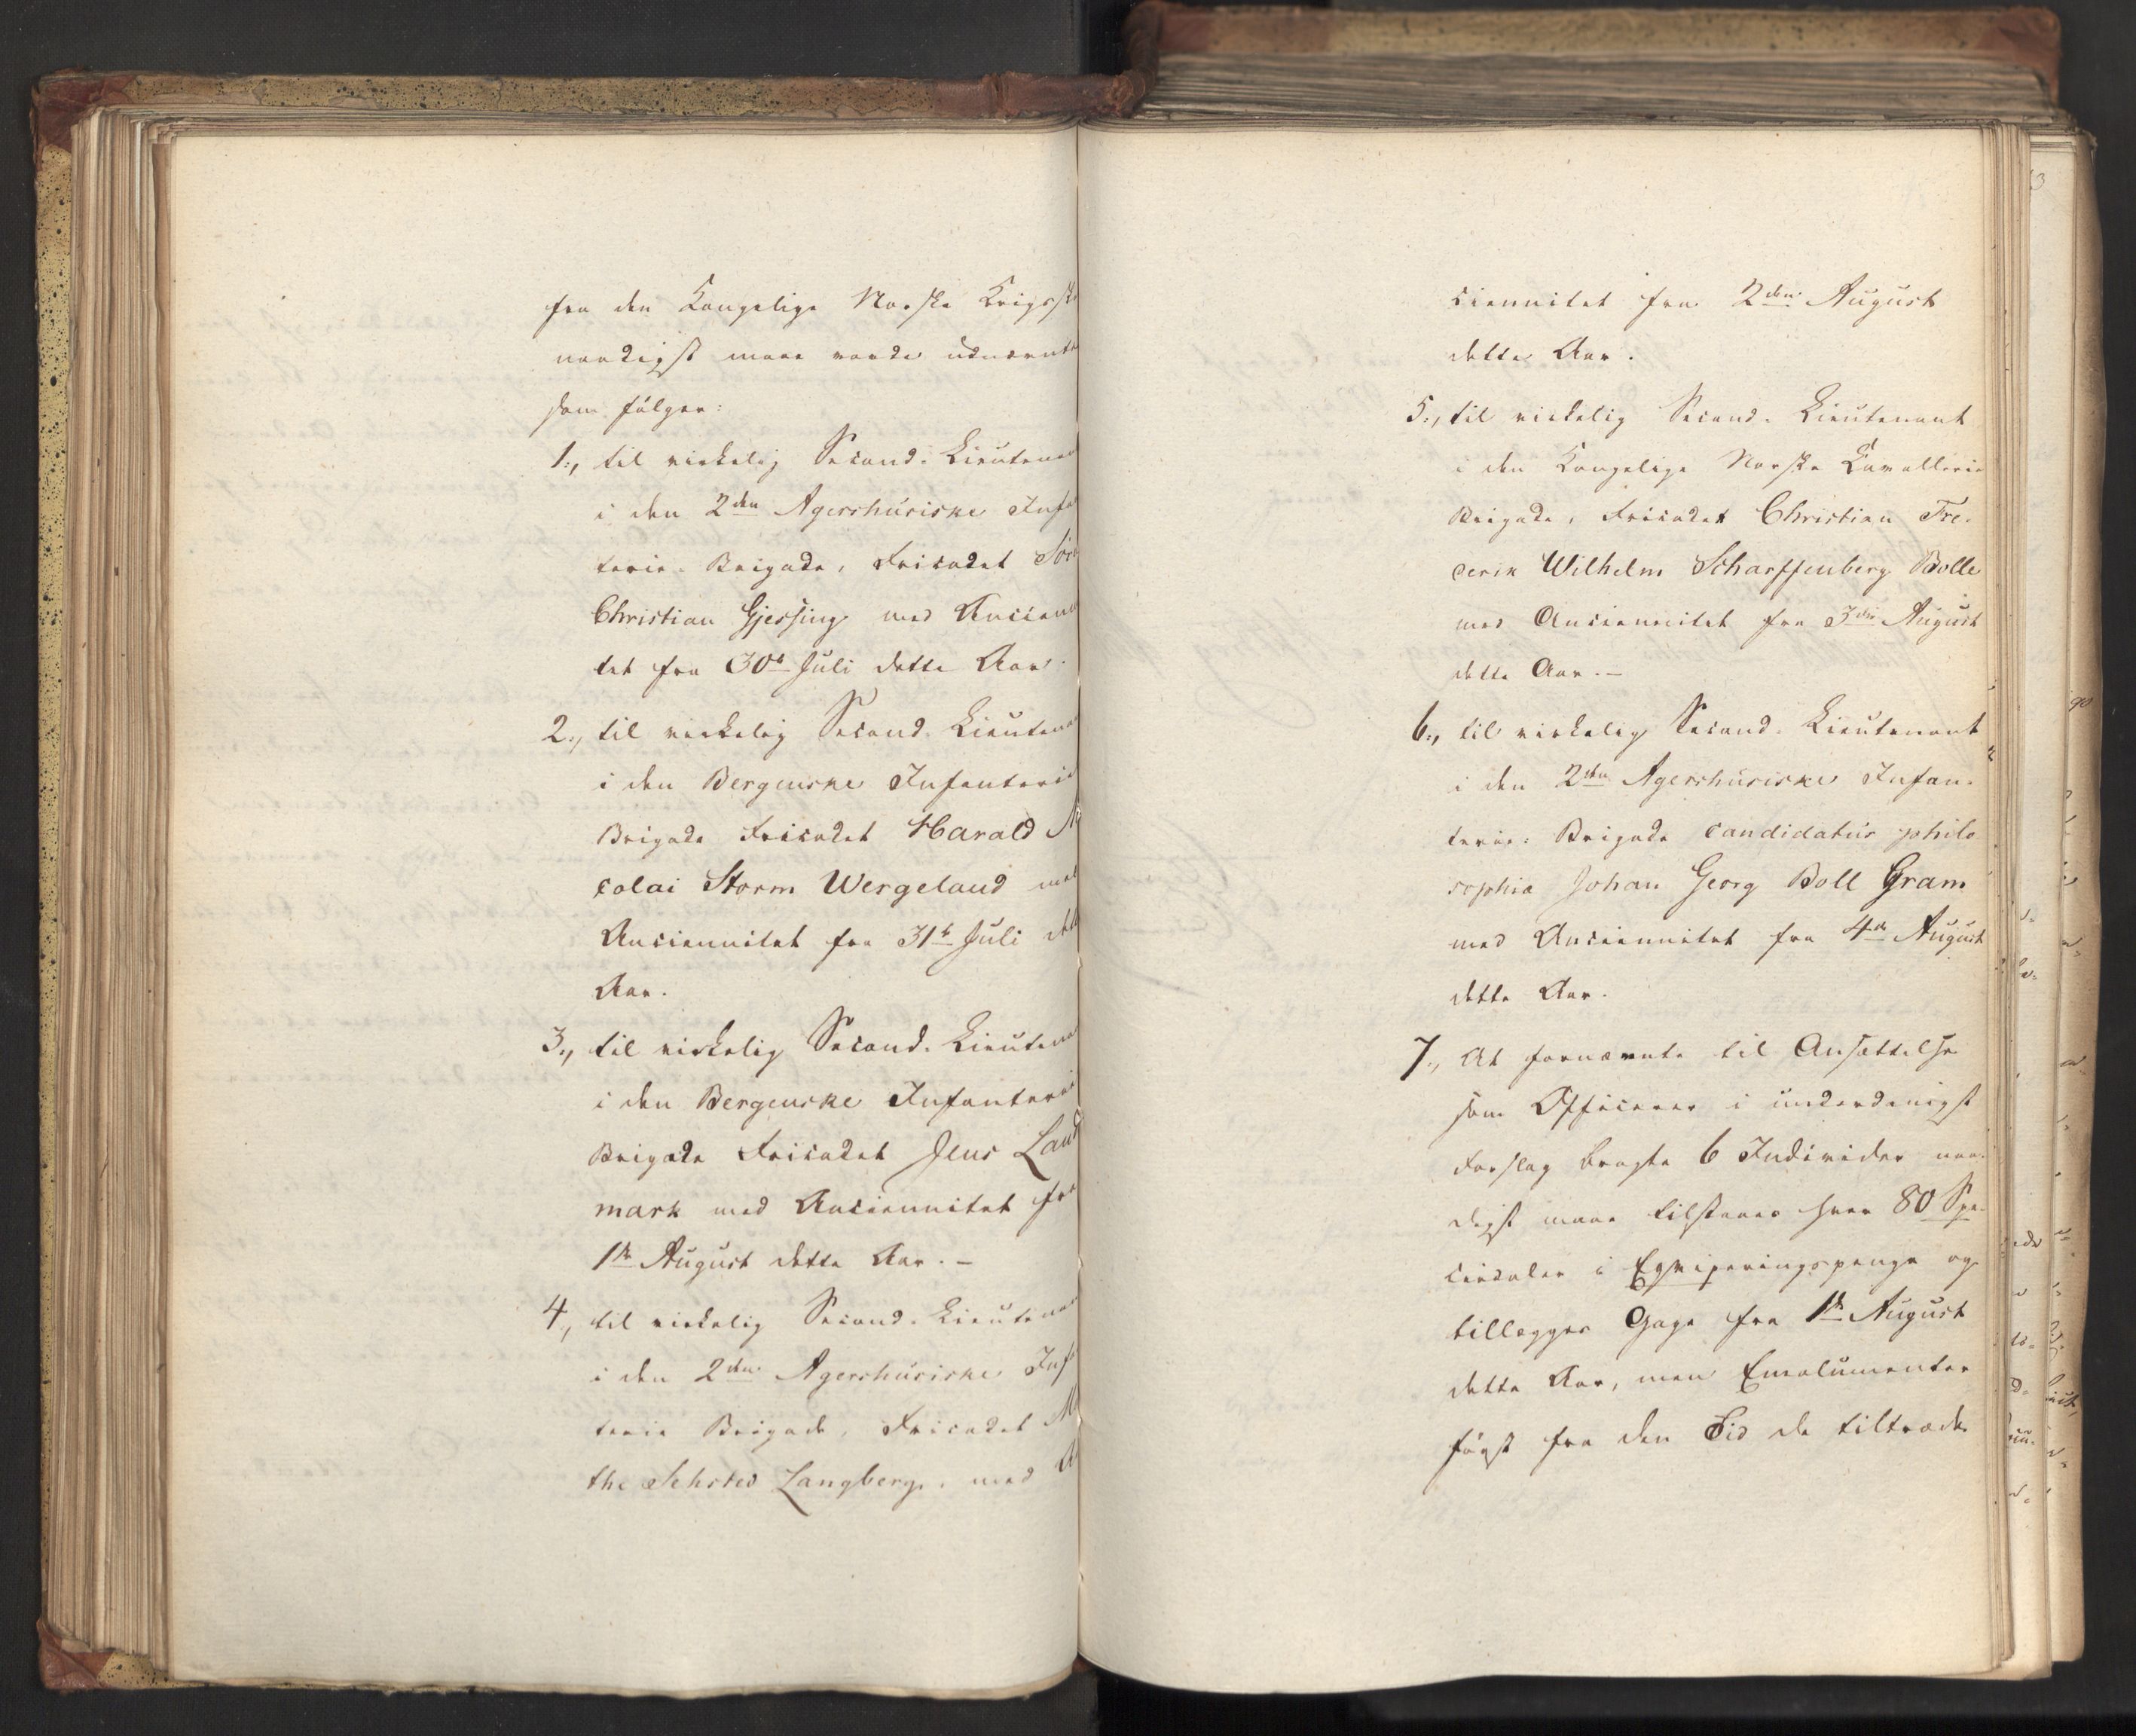 fra den Kongelige Norske Krigssk
naadigst maae vorde udnævnte
som følger:
1., til virkelig Second-Lieutenan
i den 2den Agershusiske Infa
terie-Brigade, Fricadet Sör
Christian Gjessing med Ancienni
tet fra 30te Juli dette Aar.
2., til virkelig Second-Lieutenan
i den Bergenske Infanterie
Brigade Fricadet Harald Ni
colai Storm Wergeland med
Anciennitet fra 31te Juli dette
Aar.
3., til virkelig Second-Lieutenan
i den Bergenske Infanterie
Brigade Fricadet Jens Land
mark med Anciennitet fra
1te August dette Aar. –
4., til virkelig Second-Lieutenan
i den 2den Agershusiske Infa
terie Brigade, Fricadet M
the Sehsted Langberg, med A
ciennitet fra 2den August
dette Aar.
5., til virkelig Second-Lieutenant
i den Kongelige Norske Cavallerie
Brigade, Fricadet Christian Fre-
derik Wilhelm Scharffenberg Bolle
med Anciennitet fra 3die August
dette Aar. –
6., til virkelig Second-Lieutenant
i den 2den Agershusiske Infan-
terie-Brigade candidatus philo
sophia Johan Georg Boll Gram
med Anciennitet fra 4de August
dette Aar.
7., At fornævnte til Ansættelse
som Officerer i underdanigst
Forslag bragte 6 Individer naa-
digst maae tilstaaes hver 80 Spe-
ciedaler i Eqviperingspenge og
tillægges Gage fra 1te August
dette Aar, men Emolumenter
først fra den Tid de tiltræde